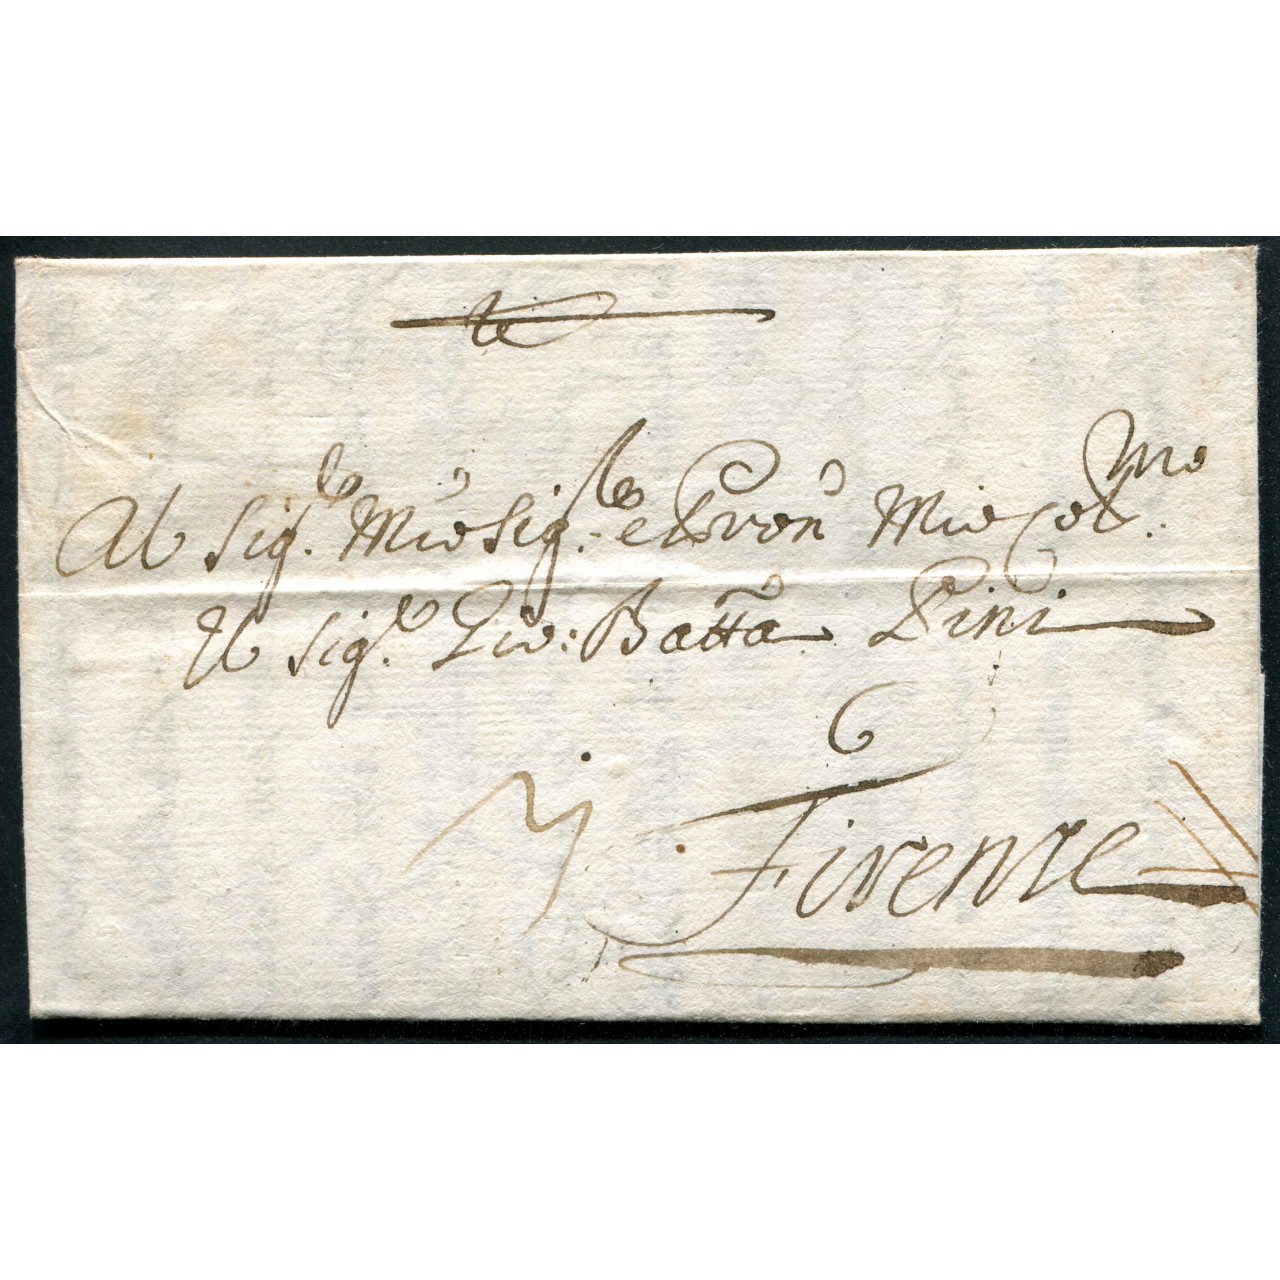 Al Sig.re Mio Sig.re e Pron Mio Col.mo
Il Sig.re Gio: Batta Pini
6
Firenze